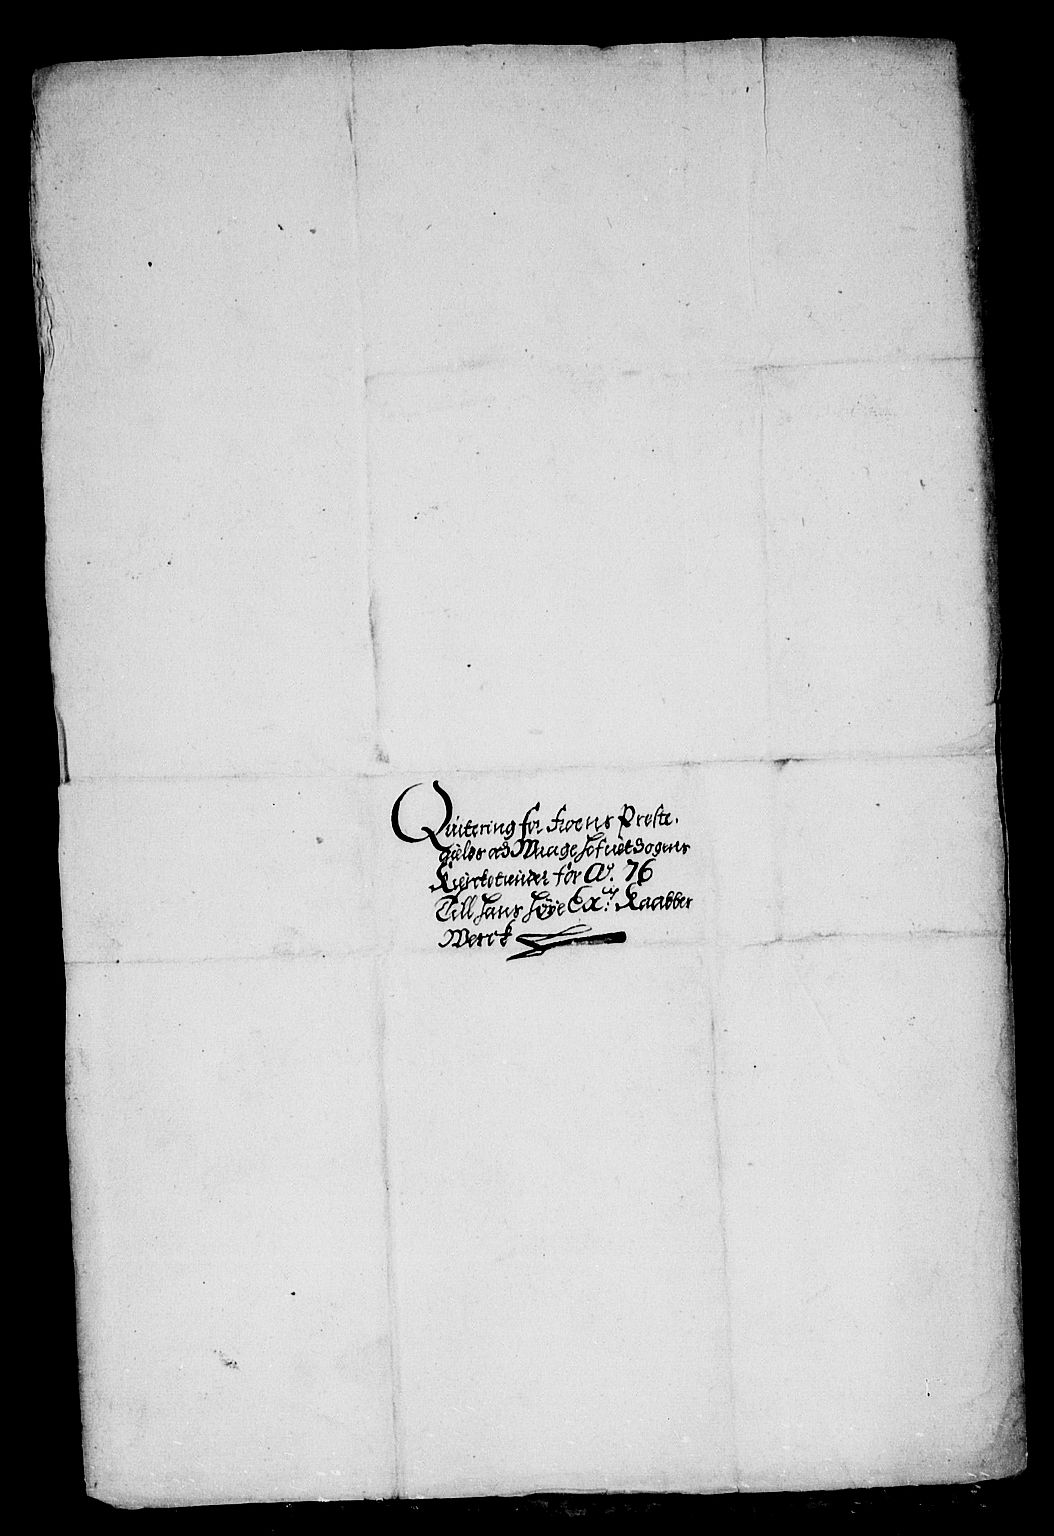 Quitering for Froens Preste,
gields och Waage Hofuetsogens
Kierketiender for Ao. 76
Till Hans Høye Exe: Kaabber
Werck